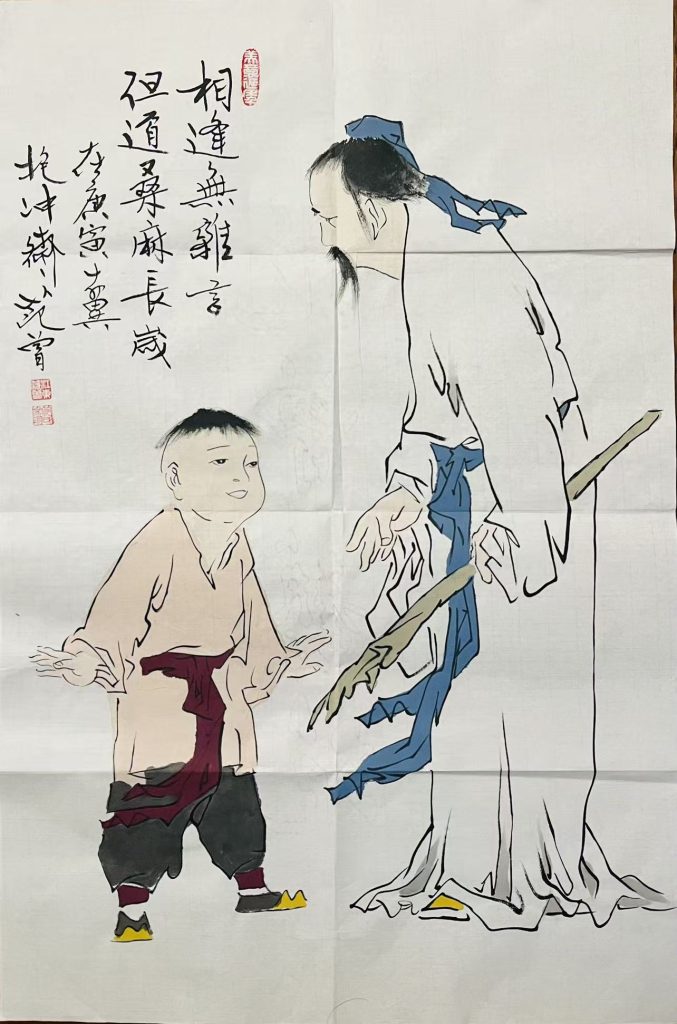 相逢無雜言
但道桑麻長歲
在庚寅十翼
抱冲齋范曾